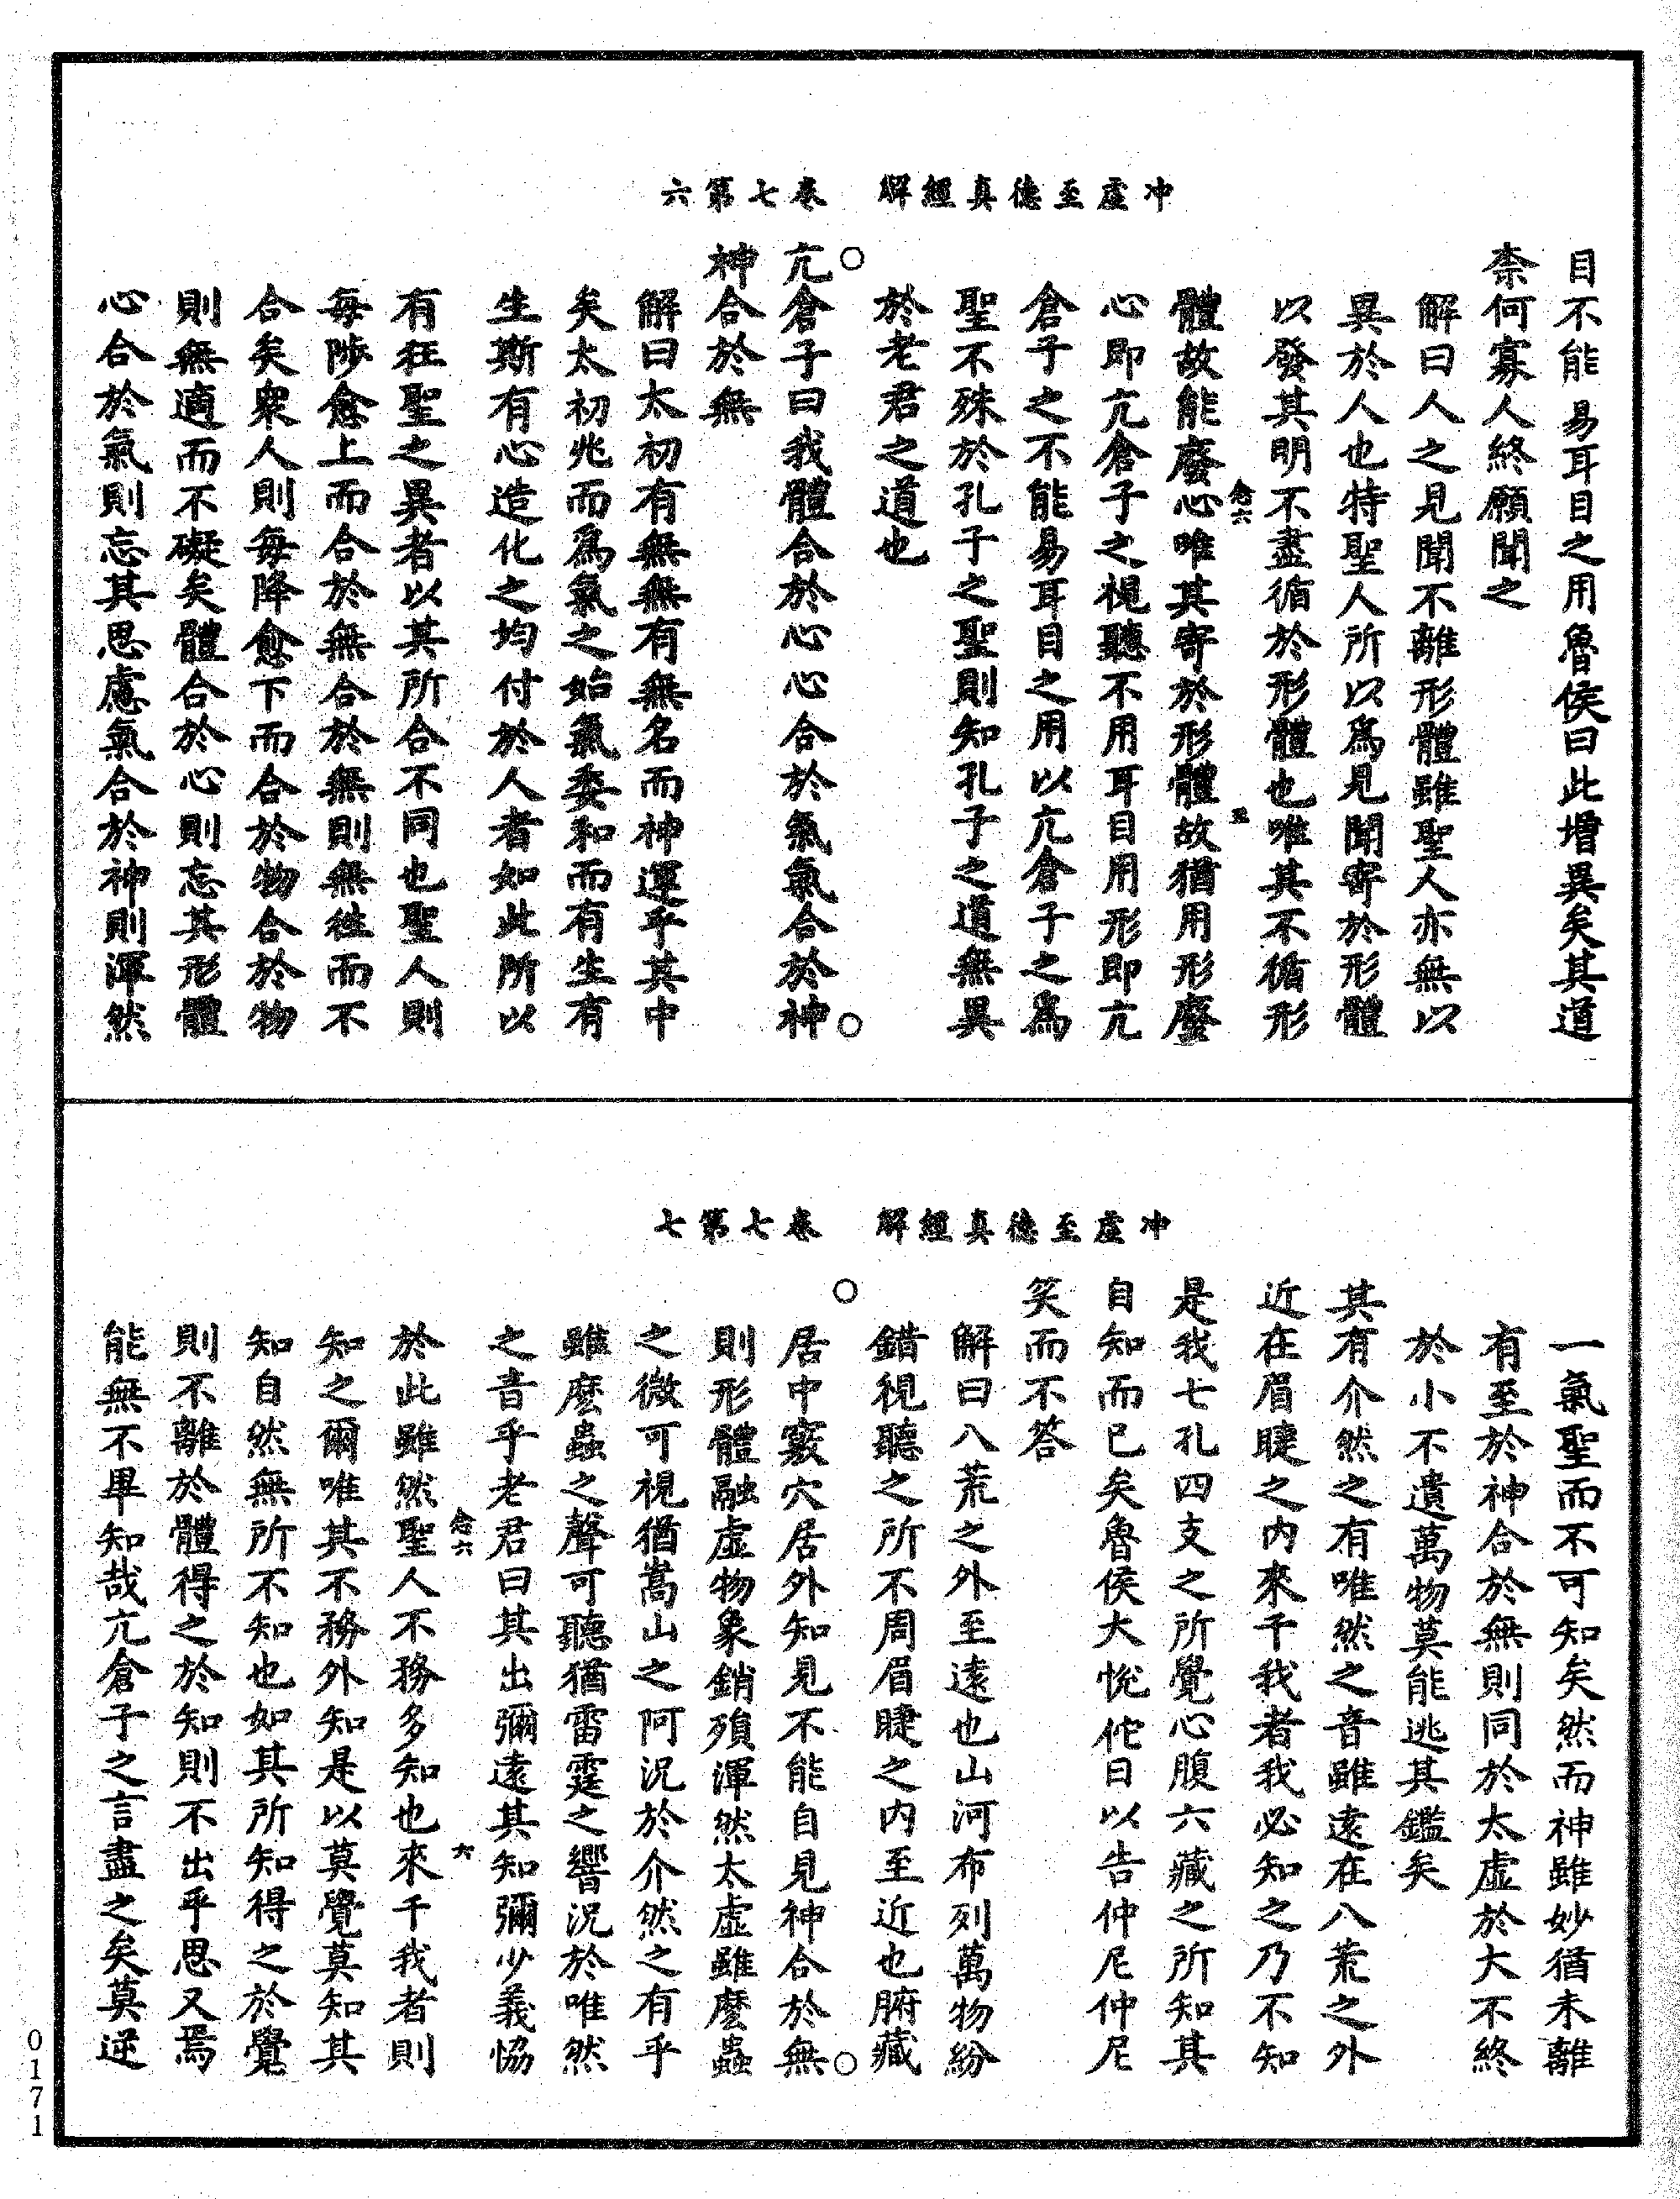 冲虛至德真經解　卷七第六
目不能易耳目之用魯侯曰此增異矣其道
柰何寡人終願聞之
解曰人之見聞不離形體雖聖人亦無以
異於人也特聖人所以爲見聞寄於形體
以發其明不盡循於形體也唯其不循形
念六
體故能廢心唯其寄於形體體故猶用形廢
五
心即亢倉子之視聽不用耳目用形即亢
倉子之不能易耳目之用以亢倉子之爲
聖不殊於孔子之聖則知孔子之道無異
於老君之道也
亢倉子曰我體合於心心合於氣氣合於神
神合於無
解曰太初有無無有無名而神運乎其中
矣太初兆而爲氣之始氣委和而有生有
生斯有心造化之均付於人者如此所以
有狂聖之異者以其所合不同也聖人則
每陟愈上而合於無合於無則無徃而不
合矣衆人則每降愈下而合於物合於物
則無適而不礙矣體合於心則忘其形體
心合於氣則忘其思慮氣合於神則渾然
冲虛至德真經解　卷七第七
一氣聖而不可知矣然而神雖妙猶未離
有至於神合於無則同於太虛於大不終
於小不遺萬物莫能逃其鑑矣
其有介然之有唯然之音雖遠在八荒之外
近在眉睫之内來干我者我必知之乃不知
是我七孔四支之所覺心腹六藏之所知其
自知而已矣魯侯大悅佗日以告仲尼仲尼
笑而不答
解曰八荒之外至遠也山河布列萬物紛
錯視聽之所不周眉睫之内至近也腑藏
居中竅穴居外知見不能自見神合於無
則形體融虛物象銷殞渾然太虛雖麽蟲
之微可視猶嵩山之阿況於介然之有乎
雖麽蟲之聲可聽猶雷霆之響況於唯然
之音乎老君曰其出彌遠其知彌少義恊
念六
於此雖然聖人不務多知也來干我者則
六
知之爾唯其不務外知是以莫覺莫知其
知自然無所不知也如其所知得之於覺
則不離於體得之於知則不出乎思又焉
能無不畢知哉亢倉子之言盡之矣莫逆
0171